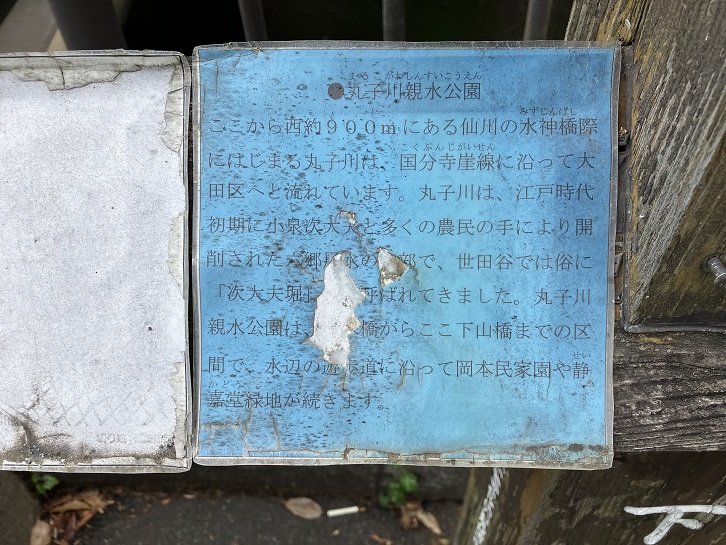 まるこがわしんすいこうえん
●丸子川親水公園
みずじんばし
ここから西約９００ｍにある仙川の水神橋際
こくぶんじがいせん
にはじまる丸子川は、国分寺崖線に沿って大
田区へと流れています。丸子川は、江戸時代
初期に小泉次大夫と多くの農民の手により開
削された 郷用水の 部で、世田谷では俗に
『次大夫堀 呼ばれてきました。丸子川
親水公園は 橋からここ下山橋までの区
間で、水辺の遊歩道に沿って岡本民家園や静
せい
かどう
嘉堂緑地が続きます。